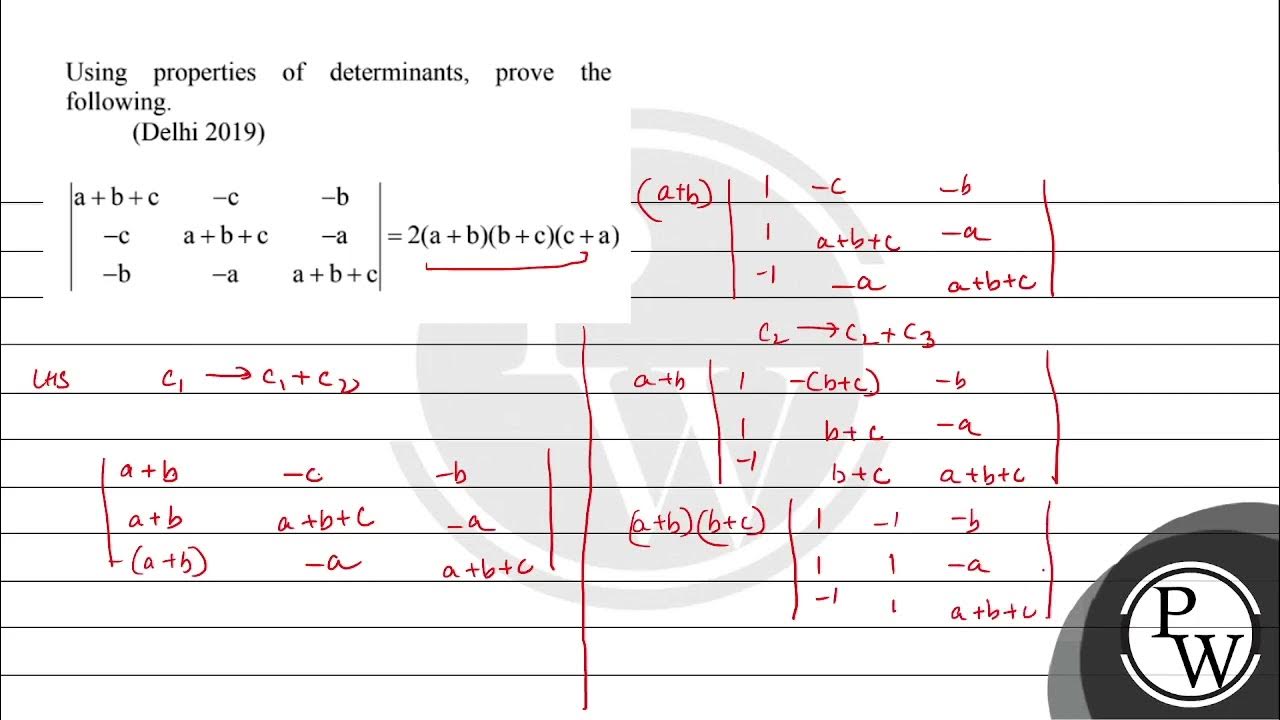 Using properties of determinants, prove the
following.
(Delhi 2019)
|a + b + c −c −b|
|−c a + b + c −a| = 2(a + b)(b + c)(c + a)
|−b −a a + b + c|
LHS C₁ → C₁ + C₂
|a+b −c −b|
|a+b a+b+c −a|
|−(a+b) −a a+b+c|
(a+b) |1 −c −b|
|1 a+b+c −a|
|−1 −a a+b+c|
C₂ → C₂ + C₃
a+b |1 −(b+c) −b|
|1 b+c −a|
|−1 b+c a+b+c|
(a+b)(b+c) |1 −1 −b|
|1 1 −a|
|−1 1 a+b+c|
P
W